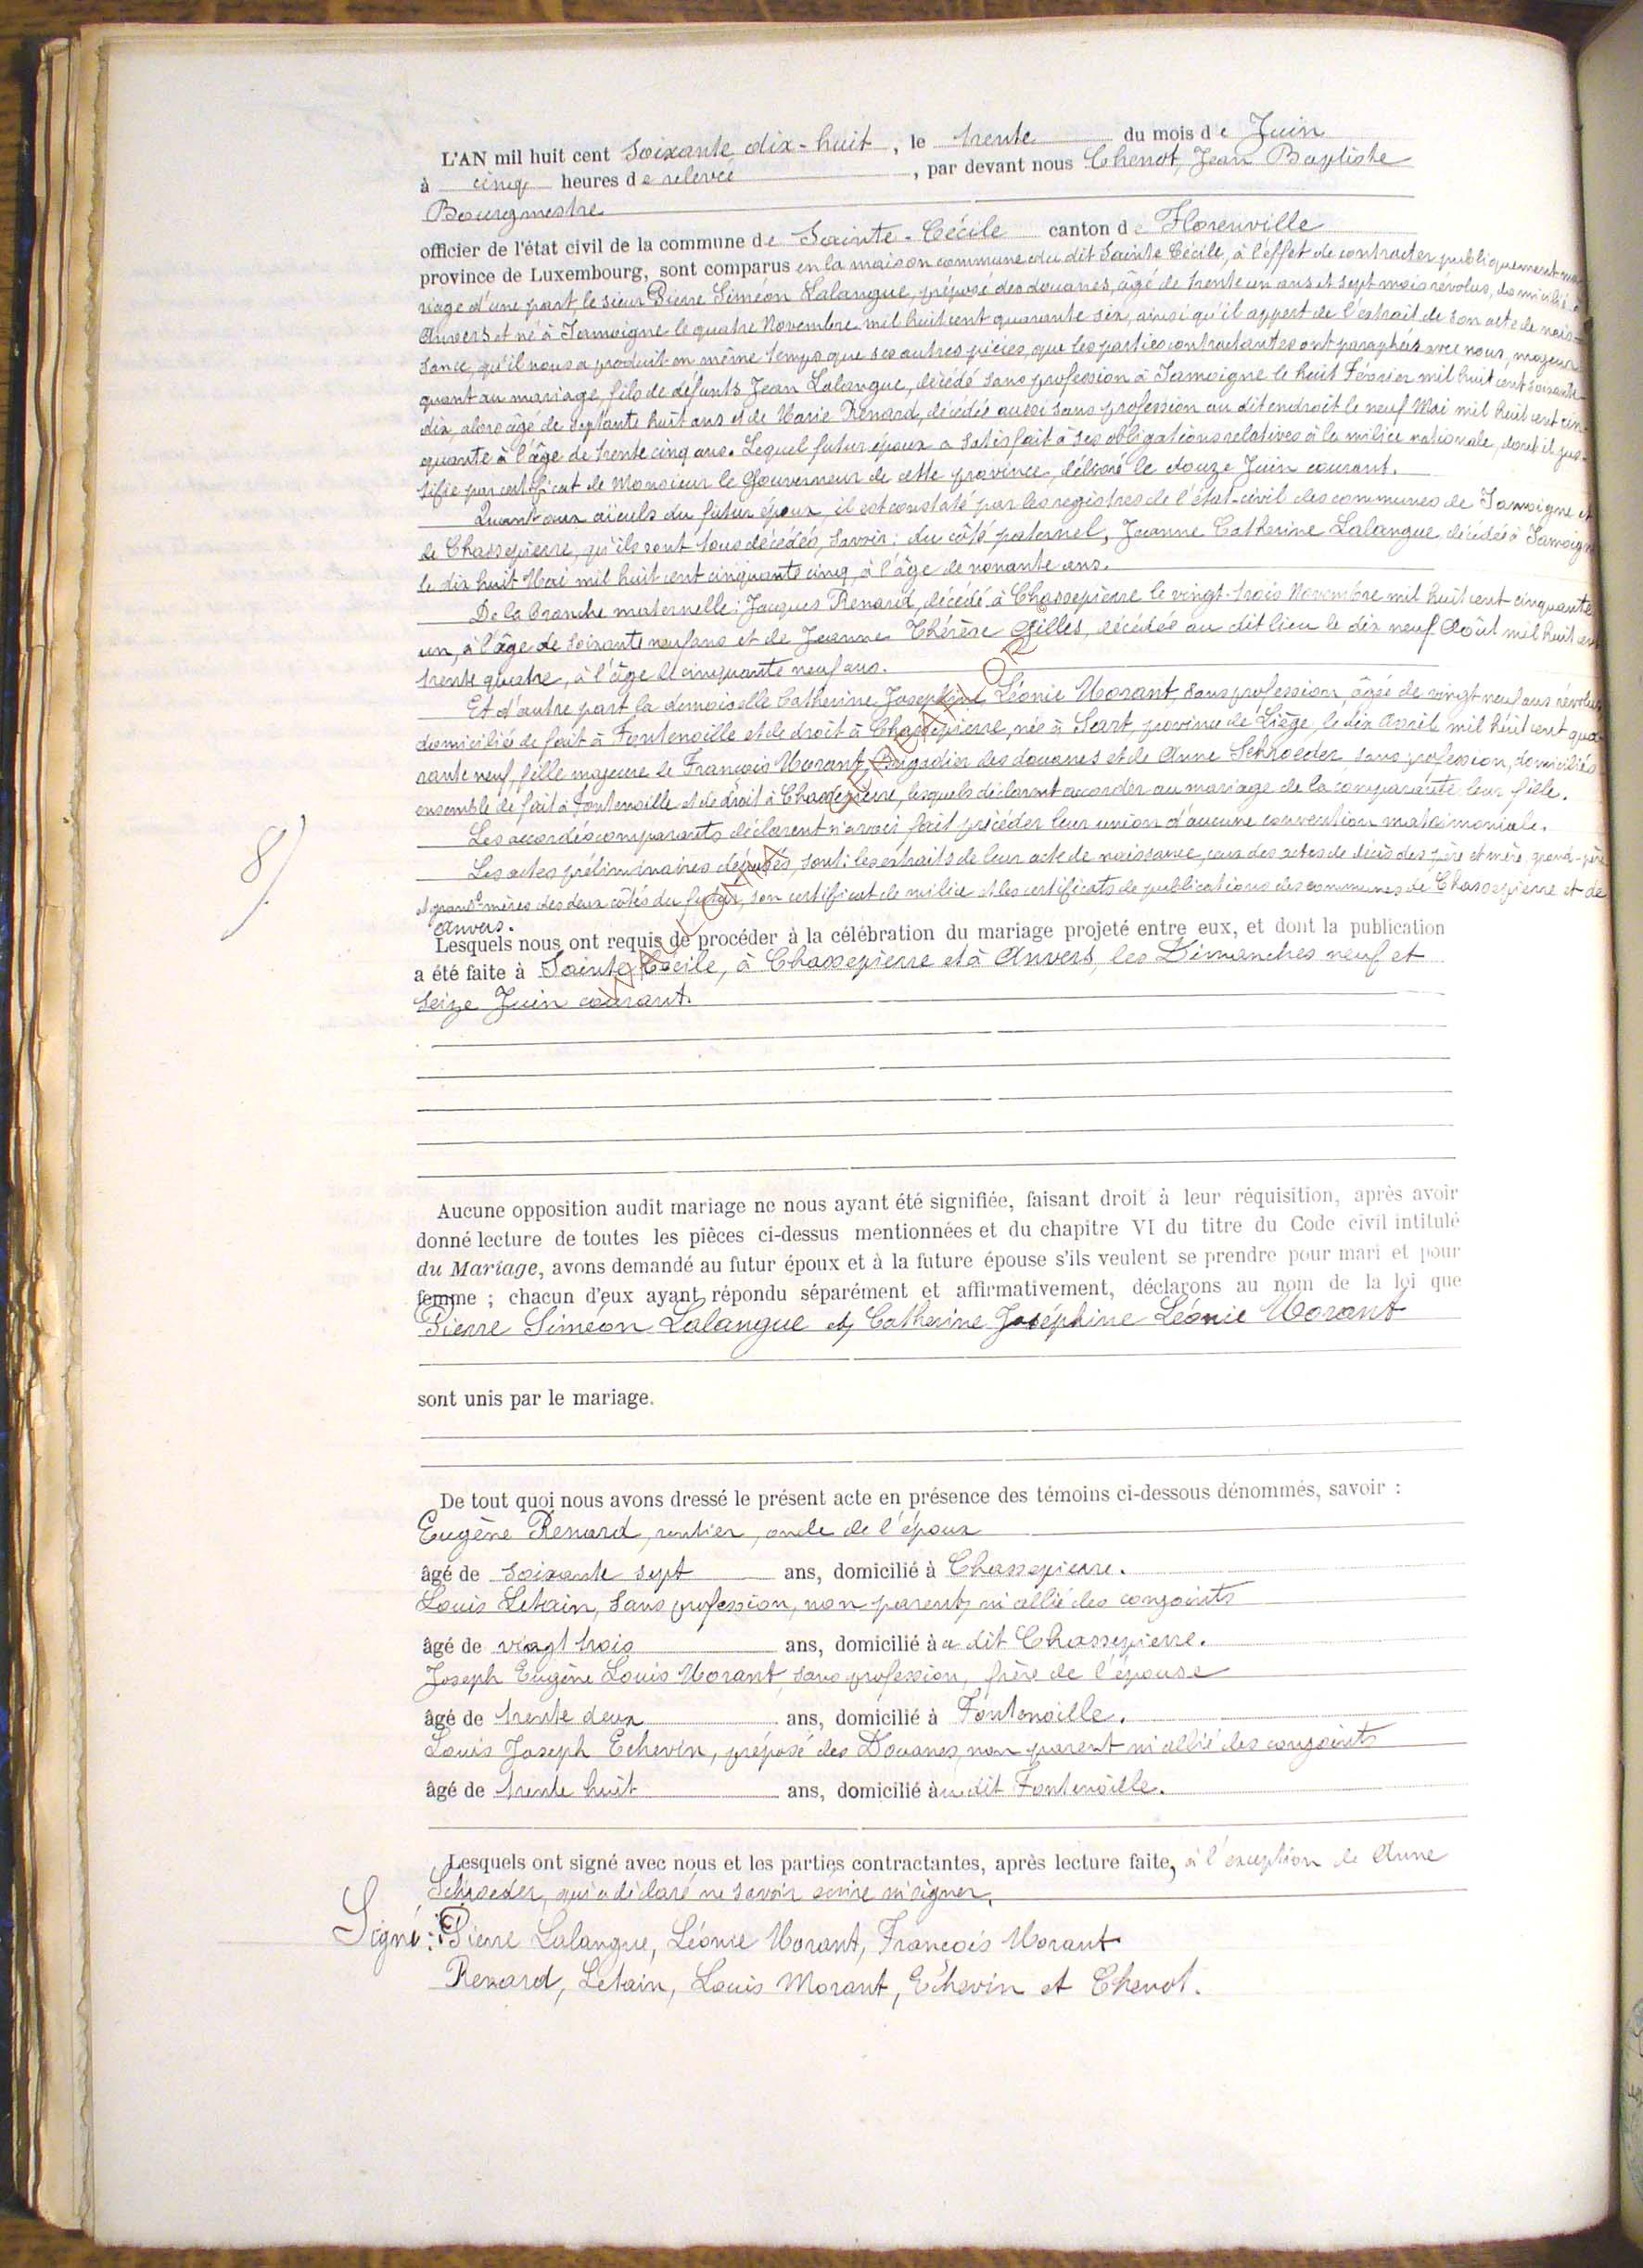 L'AN mil huit cent soixante dix-huit, le trente du mois de Juin
à cinq heures de relevée, par devant nous Chenot, Jean Baptiste
Bourgmestre
officier de l'état civil de la commune de Sainte-Cécile canton de Florenville
province de Luxembourg, sont comparus en la maison commune du dit Sainte Cécile, à l'effet de contracter publiquement ma-
riage d'une part, le sieur Pierre Siméon Lalangue, préposé des douanes, âgé de trente un ans et sept mois révolus, domicilié à
Anvers et né à Jamoigne le quatre Novembre mil huit cent quarante six, ainsi qu'il appert de l'extrait de son acte de nais-
sance, qu'il nous a produit en même temps que ses autres pièces, que les parties contractantes ont paraphées avec nous, majeur
quant au mariage, fils de défunts Jean Lalangue, décédé sans profession à Jamoigne le huit Février mil huit cent soixante
dix, alors âgé de septante huit ans et de Marie Renard, décédée aussi sans profession au dit endroit le neuf Mai mil huit cent cin-
quante à l'âge de trente cinq ans. Lequel futur époux a satisfait à ses obligations relatives à la milice nationale, dont il jus-
tifie par certificat de Monsieur le Gouverneur de cette province, délivré le douze Juin courant.
Quant aux aïeuls du futur époux, il est constaté par les registres de l'état-civil des communes de Jamoigne et
de Chassepierre, qu'ils sont tous décédés, savoir: du côté paternel, Jeanne Catherine Lalangue décédée à Jamoigne
le dix huit Mai mil huit cent cinquante cinq à l'âge de nonante ans.
De la branche maternelle: Jacques Renard, décédé à Chassepierre le vingt-trois Novembre mil huit cent cinquante
un, à l'âge de soixante neuf ans et de Jeanne Thérèse Gilles, décédée au dit lieu le dix neuf Août mil huit cent
trente quatre, à l'âge de cinquante neuf ans.
Et d'autre part la demoiselle Catherine Joséphine Léonie Morant, sans profession, âgée de vingt neuf ans révolus
domiciliée de fait à Fontenoille et de droit à Chassepierre, née à Sart, province de Liège, le dix Avril mil huit cent qua-
rante neuf, fille majeure de François Morant, Brigadier des douanes et de Anne Schroeder, sans profession, domiciliés
ensemble de fait à Fontenoille et de droit à Chassepierre, lesquels déclarent accorder au mariage de la comparante leur fille.
Les accordés comparants déclarent n'avoir fait précéder leur union d'aucune convention matrimoniale.
8/
Les actes préliminaires déposés, sont: les extraits de leur acte de naissance, ceux des actes de décès des père et mère, grand-père
et grand'mères des deux côtés du futur, son certificat de milice et les certificats de publications des communes de Chassepierre et de
Anvers.
Lesquels nous ont requis de procéder à la célébration du mariage projeté entre eux, et dont la publication
a été faite à Sainte Cécile, à Chassepierre et à Anvers, les Dimanches neuf et
seize Juin courant.
Aucune opposition audit mariage ne nous ayant été signifiée, faisant droit à leur réquisition, après avoir
donné lecture de toutes les pièces ci-dessus mentionnées et du chapitre VI du titre du Code civil intitulé
du Mariage, avons demandé au futur époux et à la future épouse s'ils veulent se prendre pour mari et pour
femme ; chacun d'eux ayant répondu séparément et affirmativement, déclarons au nom de la loi que
Pierre Siméon Lalangue et Catherine Joséphine Léonie Morant
sont unis par le mariage.
De tout quoi nous avons dressé le présent acte en présence des témoins ci-dessous dénommés, savoir :
Eugène Renard, rentier, oncle de l'époux
âgé de soixante sept ans, domicilié à Chassepierre.
Louis Letain, sans profession, non parent, ni allié des conjoints
âgé de vingt trois ans, domicilié àu dit Chassepierre.
Joseph Eugène Louis Morant sans profession, frère de l'épouse
âgé de trente deux ans, domicilié à Fontenoille.
Louis Joseph Echevin, préposé des Douanes, non parent ni allié des conjoints
âgé de trente huit ans, domicilié àu dit Fontenoille.
Lesquels ont signé avec nous et les parties contractantes, après lecture faite, à l'exception de Anne
Schroeder, qui a déclaré ne savoir écrire ni signer.
Signé: Pierre Lalangue, Léonie Morant, François Morant
Renard, Letain, Louis Morant, Echevin et Chenot.